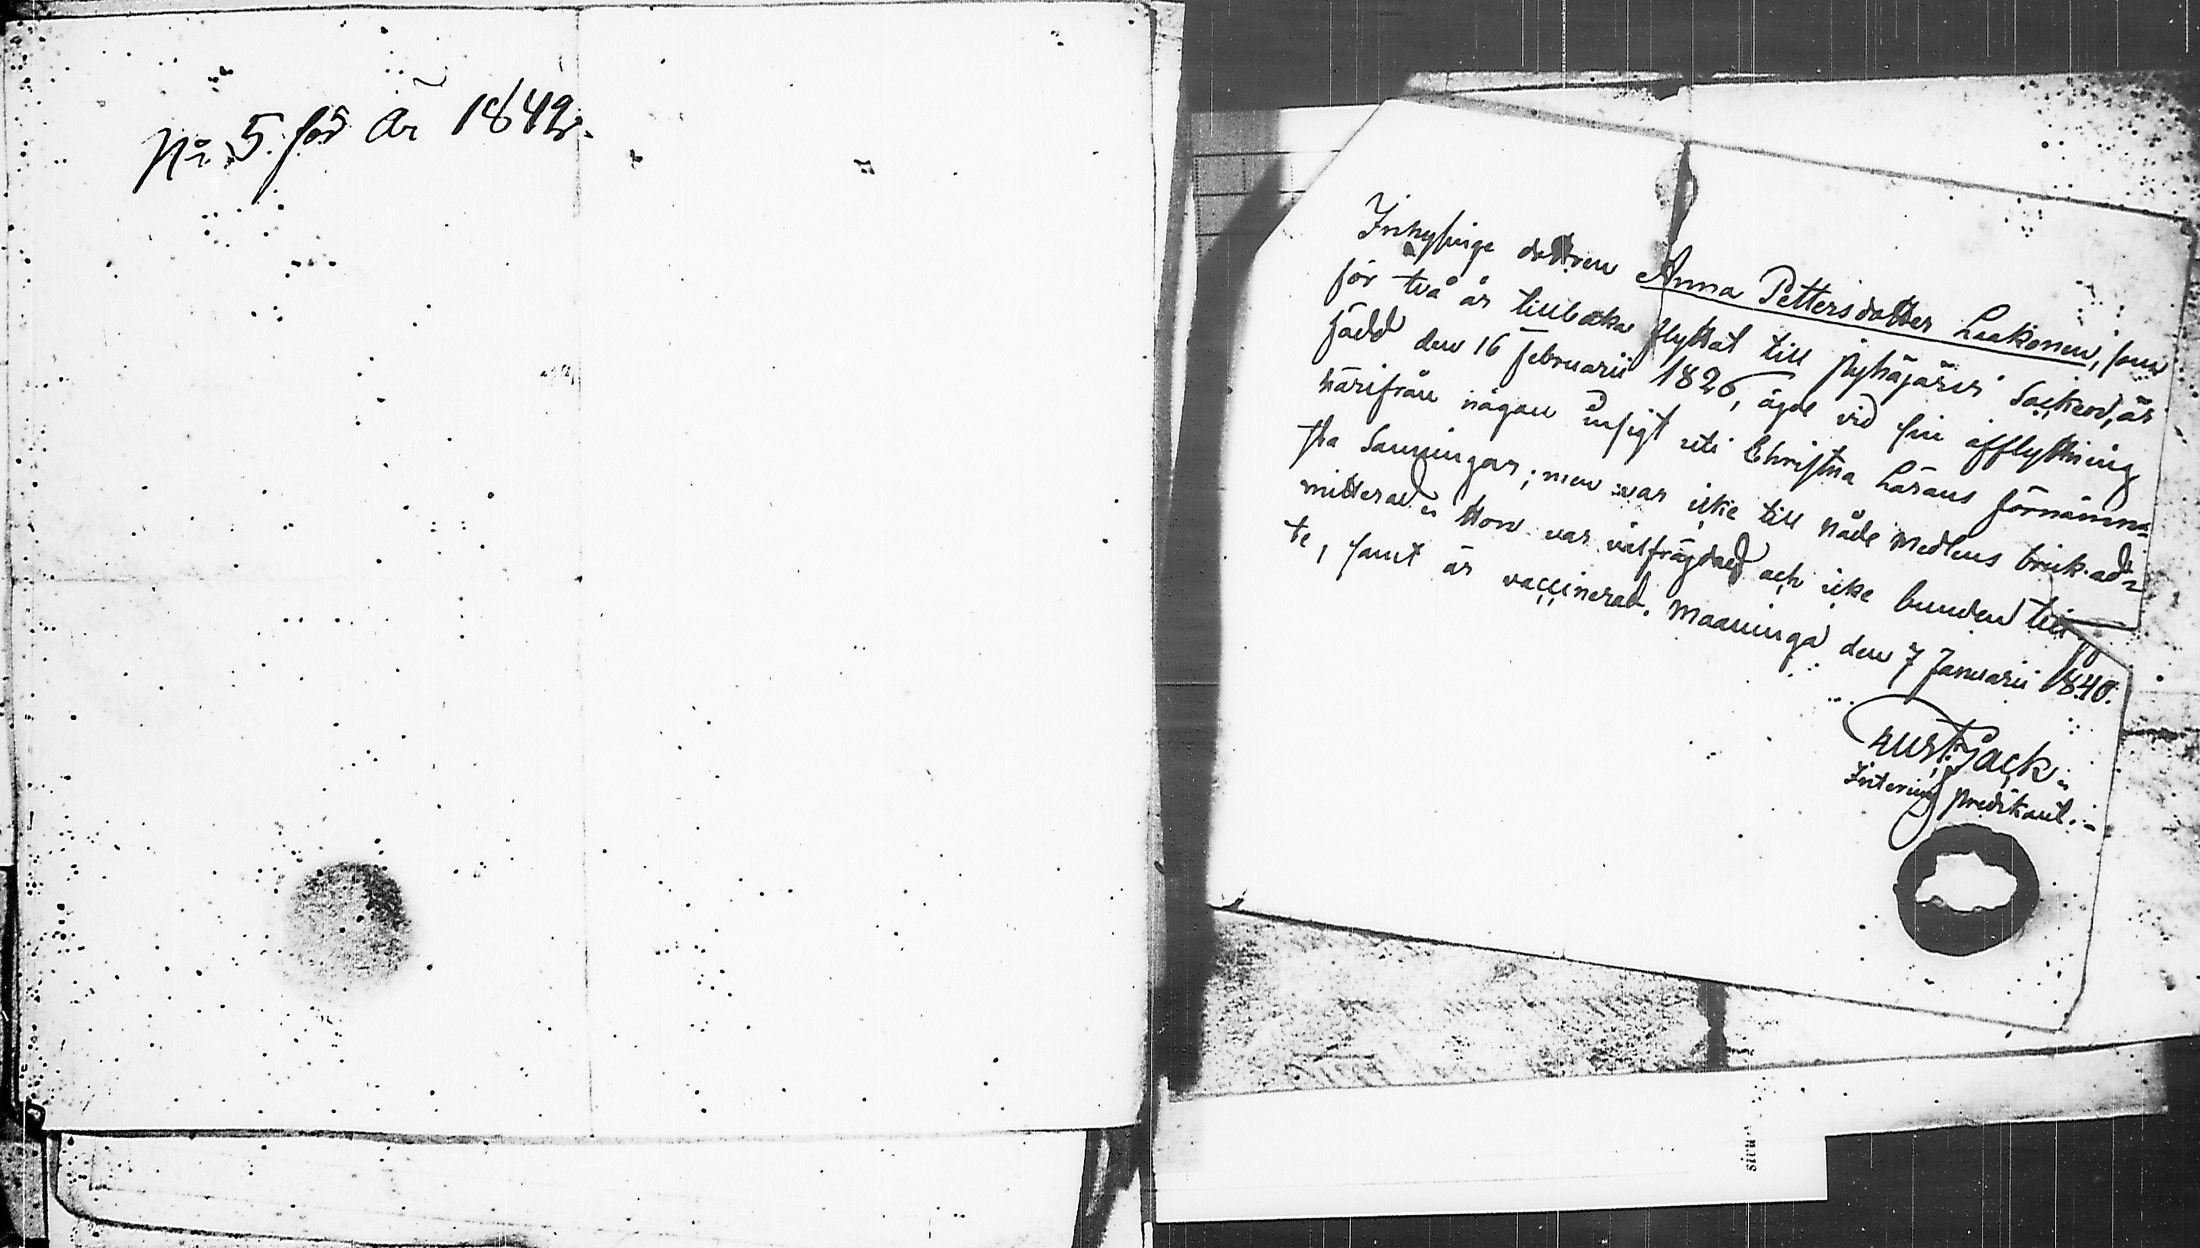 No 5 för År 1842.
Inhysinge dottren Anna Pettersdotter Laakonen, som
för två år tillbaka flyttat till Pyhäjärvi Socken, är
född den 16 Februarii 1826, ägde vid sin afflyttning
härifrån någon insigt uti Christna Lärans förnämn-
sta Sanningar; men var icke till Nåde Medlens bruk ad-
mitterad. Hon var välfrägdad och icke bunden till äk-
te, samt är vaccinerad. Maaninga den 7 Januarii 1840.
Gust. Jack
Interims predikant.
sivu